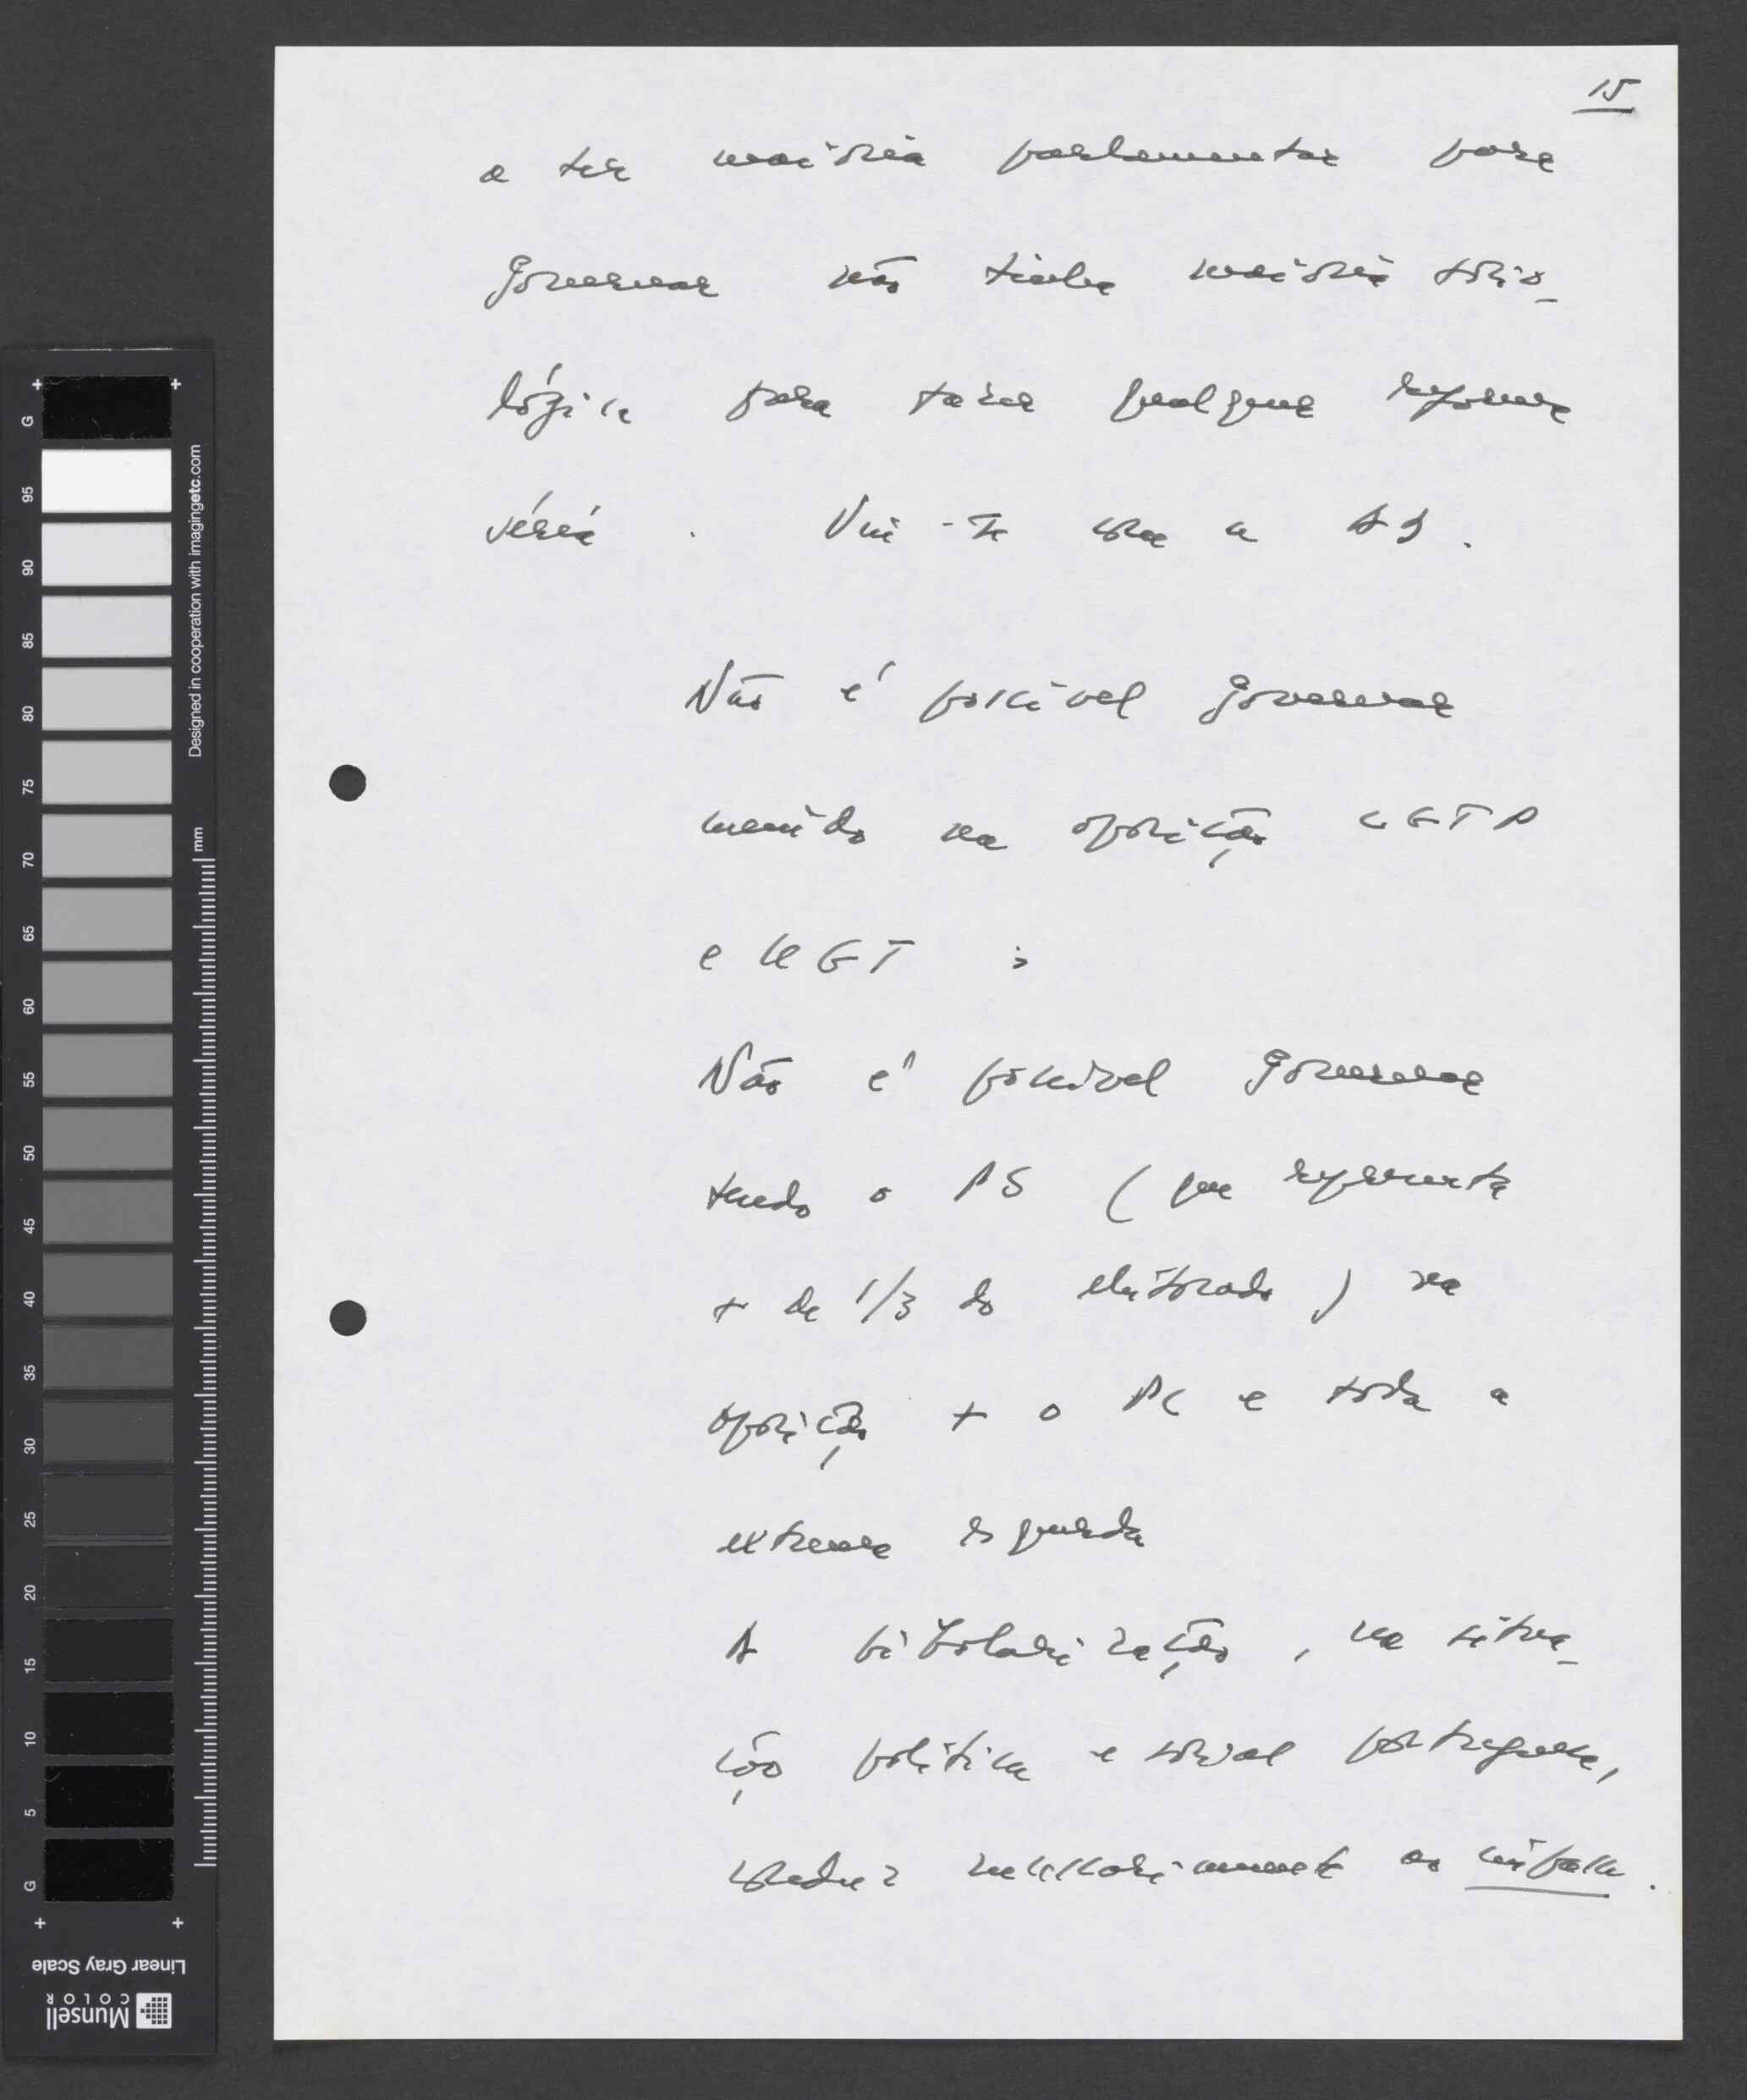 15
a ter maioria parlamentar para
governar não tinha maioria socio-
lógica para fazer qualquer reforma
séria. Viu-se com a AD.
Não é possível governar
unido na oposição CGTP
e UGT;
Não é possível governar
tendo o PS (que representa
+ de 1/3 do eleitorado) na
oposição + o PC e toda a
extrema esquerda
A bipolarização, na situa-
ção política e social portuguesa,
conduz necessariamente ao impasse.
G
95
90
85
80
75
70
65
60
55
50
45
40
35
30
25
20
15
10
5
G
Designed in cooperation with imagingetc.com
mm
Linear Gray Scale
Munsell
COLOR